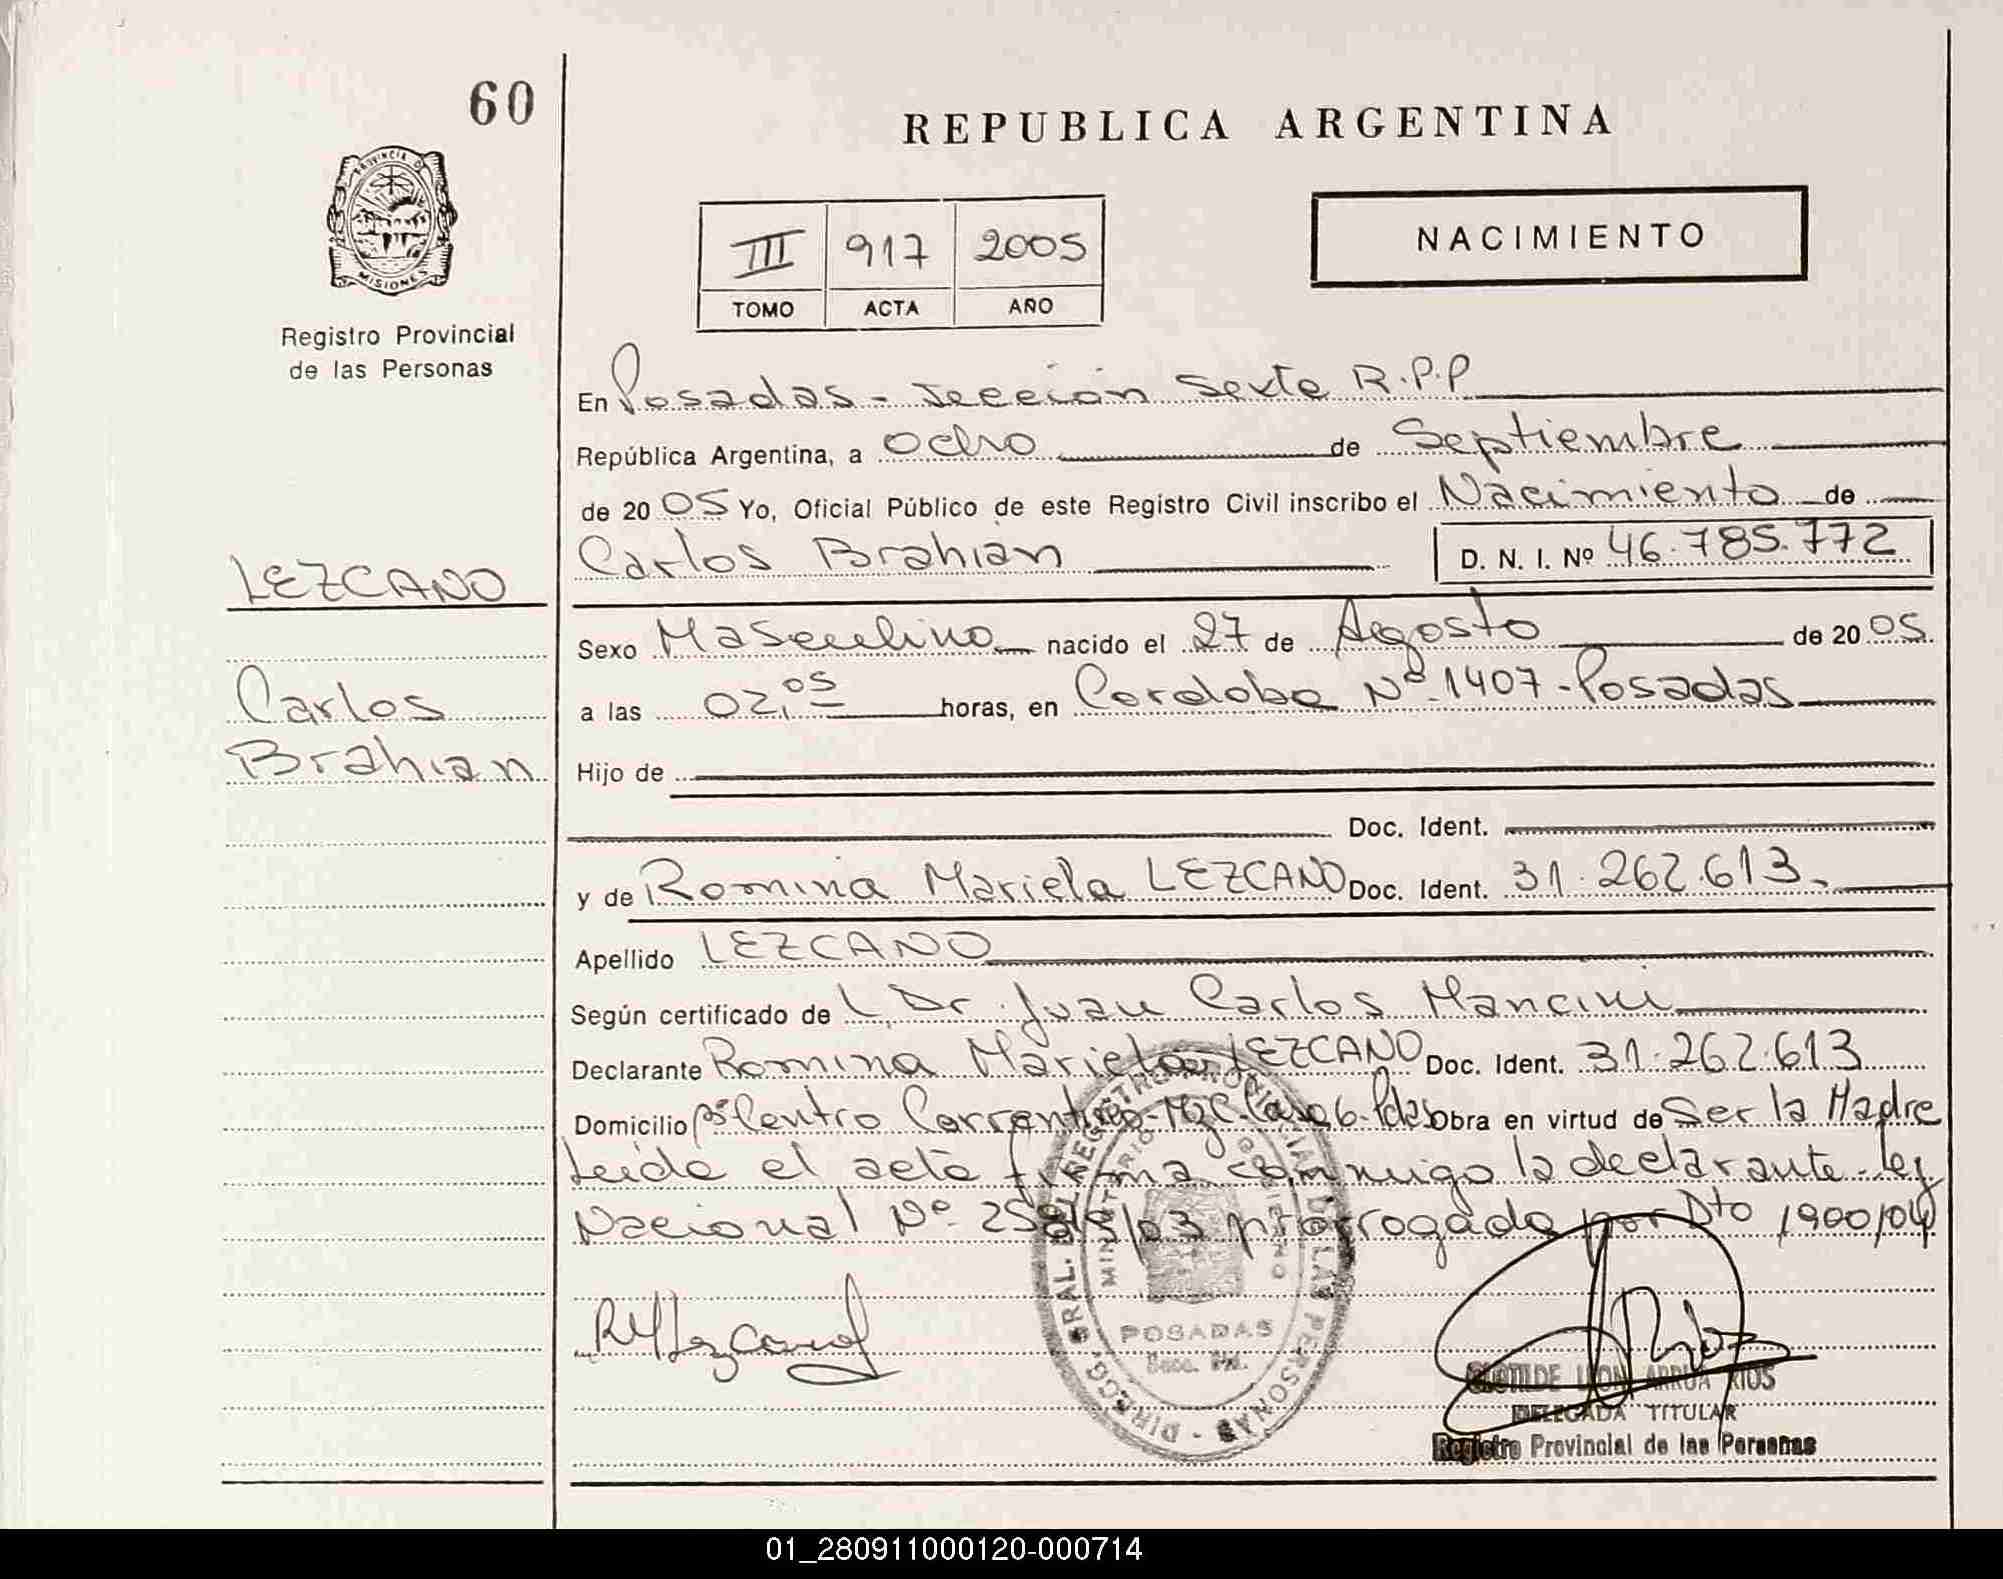 60
REPUBLICA ARGENTINA
PROVINCIA DE
MISIONES
Registro Provincial
de las Personas
III 917 2005
TOMO ACTA AÑO
NACIMIENTO
En Posadas - Sección Sexta R.P.P
República Argentina, a ocho de Septiembre
de 20 05 Yo, Oficial Público de este Registro Civil inscribo el Nacimiento de
Carlos Brahian D. N. I. Nº 46.785.772
LEZCANO
Sexo Masculino nacido el 27 de Agosto de 20 05
Carlos
a las 02,05 horas, en Cordoba Nº 1407 - Posadas
Brahian
Hijo de
Doc. Ident.
y de Romina Mariela LEZCANO Doc. Ident. 31.262.613.
Apellido LEZCANO
Según certificado de Dr. Juan Carlos Mancini
Declarante Romina Mariela LEZCANO Doc. Ident. 31.262.613
Domicilio Bº Centro Correntino - Mz C - Casa 6 - Pdas Obra en virtud de Ser la Madre
Leída el acta firma conmigo la declarante - Ley
Nacional Nº 25819/03 prorrogada por Dto 1900/04
RMLezcano
DIRECC. GRAL. DEL REGISTRO PROVINCIAL DE LAS PERSONAS
MINISTERIO GOBIERNO
POSADAS
CLOTILDE ARRUA RIOS
DELEGADA TITULAR
Registro Provincial de las Personas
01_280911000120-000714